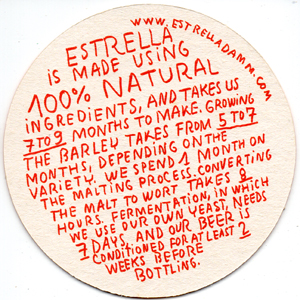 WWW.ESTRELLADAMM.COM
ESTRELLA
IS MADE USING
100% NATURAL
INGREDIENTS, AND TAKES US
7 TO 9 MONTHS TO MAKE. GROWING
THE BARLEY TAKES FROM 5 TO 7
MONTHS, DEPENDING ON THE
VARIETY. WE SPEND 1 MONTH ON
THE MALTING PROCESS. CONVERTING
THE MALT TO WORT TAKES 8
HOURS. FERMENTATION, IN WHICH
WE USE OUR OWN YEAST, NEEDS
7 DAYS, AND OUR BEER IS
CONDITIONED FOR AT LEAST 2
WEEKS BEFORE
BOTTLING.